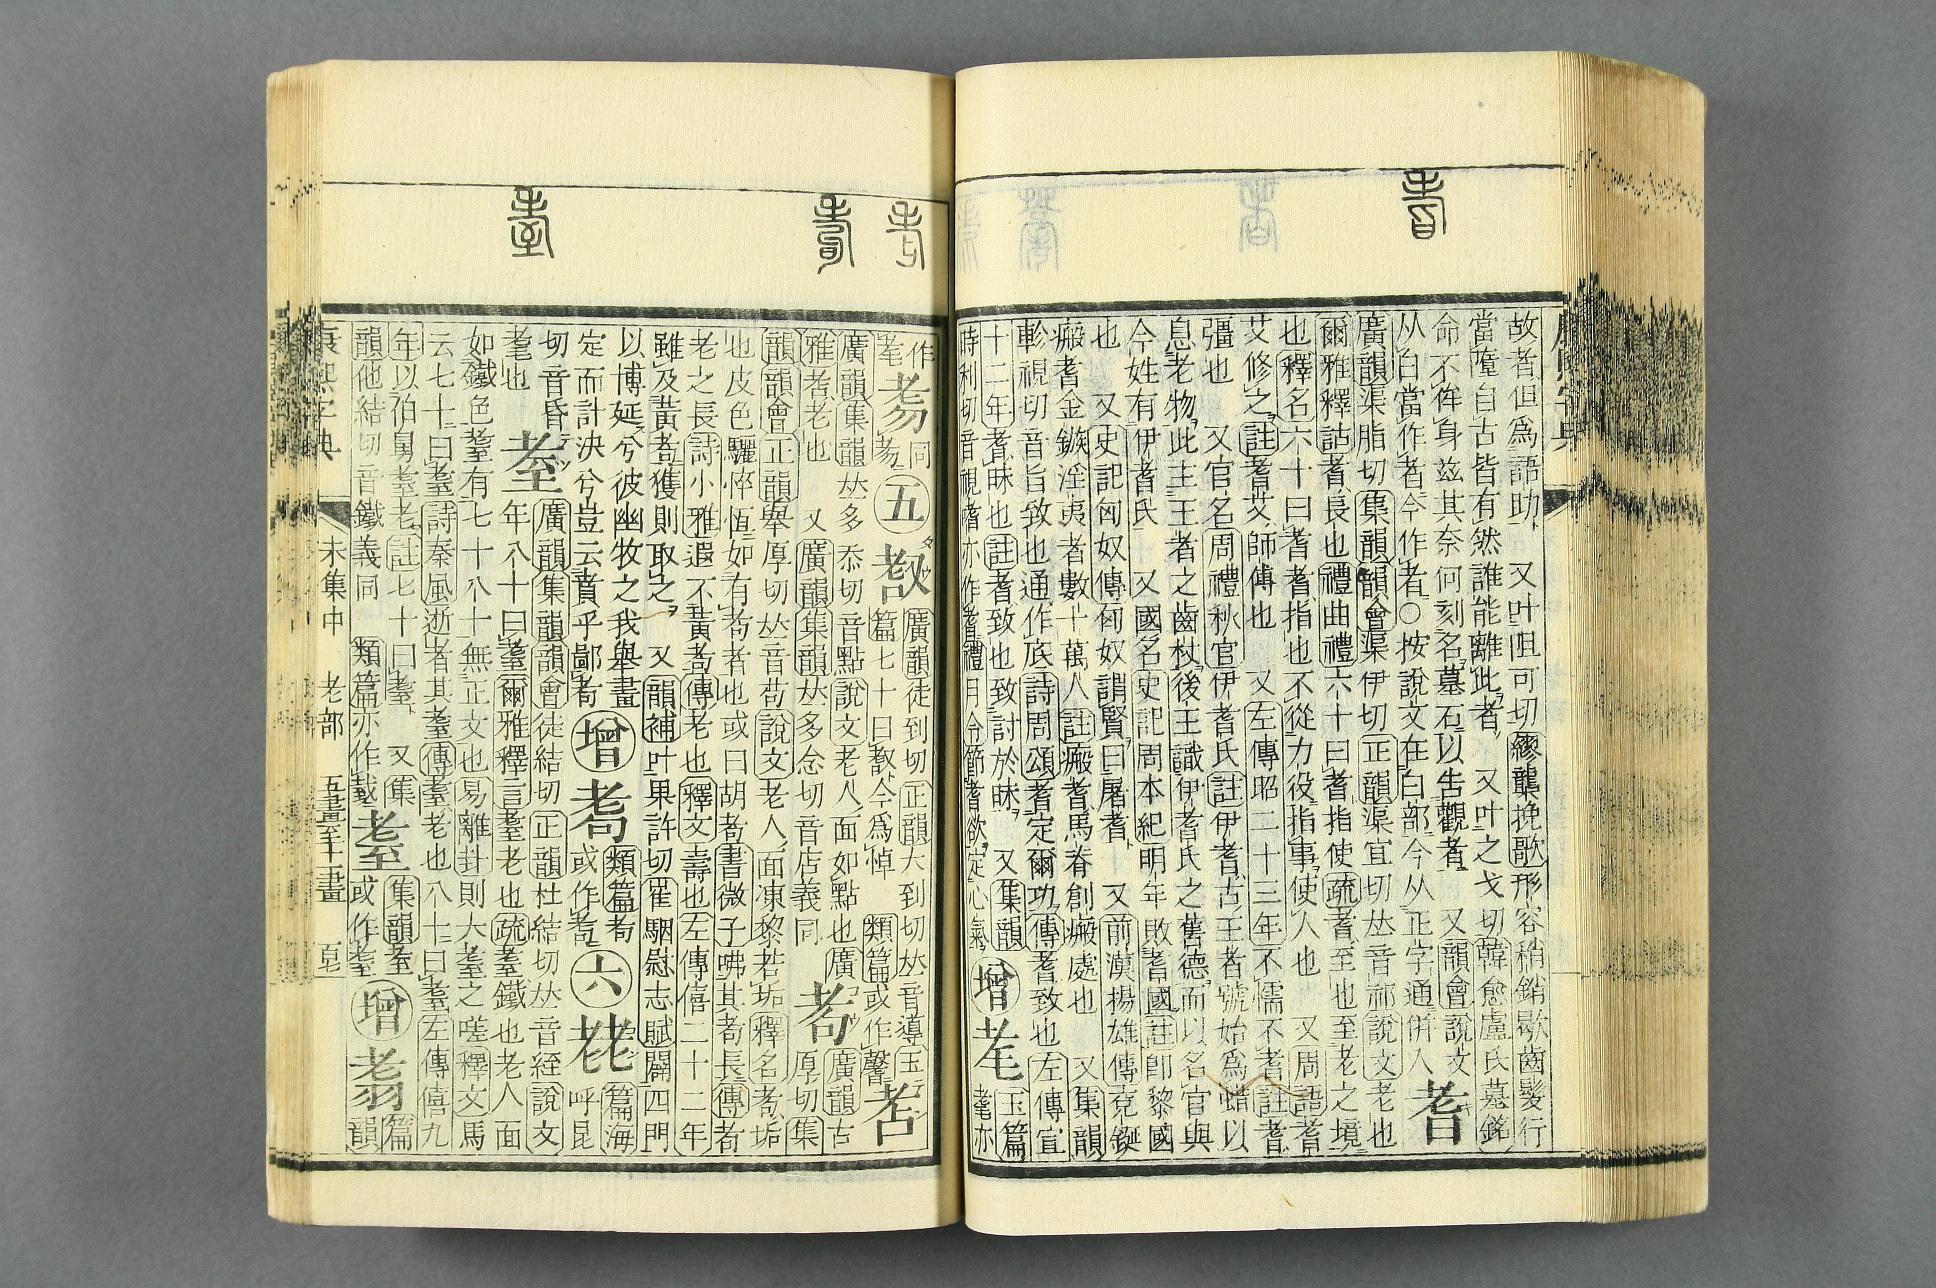 故者但爲語助又叶呾可切繆襲挽歌形容稍銷歇齒髮行
當墮自古皆有然誰能離此者又叶之戈切韓愈盧氏墓銘
命不侔身兹其奈何刻名墓石以告觀者又韻會說文
从白當作者今作者○按說文在白部今从正字通併入耆
廣韻渠脂切集韻韻會渠伊切正韻渠宜切𠀤音祁說文老也
爾雅釋詁耆長也禮曲禮六十曰耆指使疏耆至也至老之境
也釋名六十曰耆耆指也不從力役指事使人也又周語耆
艾修之註耆艾師傅也又左傳昭二十三年不懦不耆註耆
彊也又官名周禮秋官伊耆氏註伊耆古王者號始爲蜡以
息老物此主王者之齒杖後王識伊耆氏之舊德而以名官與
今姓有伊耆氏又國名史記周本紀明年敗耆國註卽黎國
也又史記匈奴傳匈奴謂賢曰屠耆又前漢揚雄傳兗鋋
瘢耆金鏃淫夷者數十萬人註瘢耆馬脊創瘢處也又集韻
軫視切音旨致也通作底詩周頌耆定爾功傳耆致也左傳宣
十二年耆昧也註耆致也致討於昧又集韻
時利切音視嗜亦作耆禮月令節耆欲定心氣增耄玉篇耄亦
作耄耇同耇五𦒻廣韻徒到切正韻大到切𠀤音導玉
篇七十曰𦒻今爲悼類篇或作𦒻耉
廣韻集韻𠀤多忝切音點說文老人面如點也廣
雅耉老也又廣韻集韻𠀤多念切音店義同耇廣韻古
厚切集
韻韻會正韻舉厚切𠀤音苟說文老人面凍黎若垢釋名耇垢
也皮色驪悴恆如有耇者也或曰胡耇書微子咈其耇長傳耇
老之長詩小雅遐不黃耇傳老也釋文壽也左傳僖二十二年
雖及黃耇獲則取之又韻補叶果許切翟駰慰志賦闢四門
以博延兮彼幽牧之我舉畫
定而計決兮豈云賁乎鄙耇增耇類篇耇或作耇六𦒱篇海呼昆
切音昏耋廣韻集韻韻會徒結切正韻杜結切𠀤音絰說文
年八十曰耋爾雅釋言耋老也疏耋鐵也老人面
如鐵色耋有七十八十無正文也易離卦則大耋之嗟釋文馬
云七十曰耋詩秦風逝者其耋傳耋老也八十曰耋左傳僖九
年以伯舅耋老註七十曰耋又集
韻他結切音鐵義同類篇亦作耋耋集韻耋或作耋增翥篇韻
康熙字典
未集中 老部 五畫至十二畫